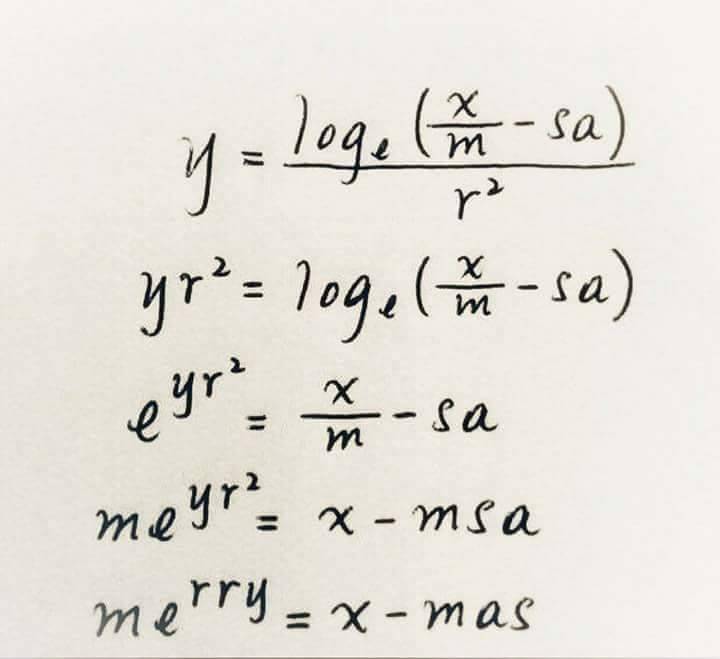 y = log_e (x/m - sa) / r²
yr² = log_e (x/m - sa)
e^yr² = x/m - sa
me^yr² = x - msa
me^rry = x - mas